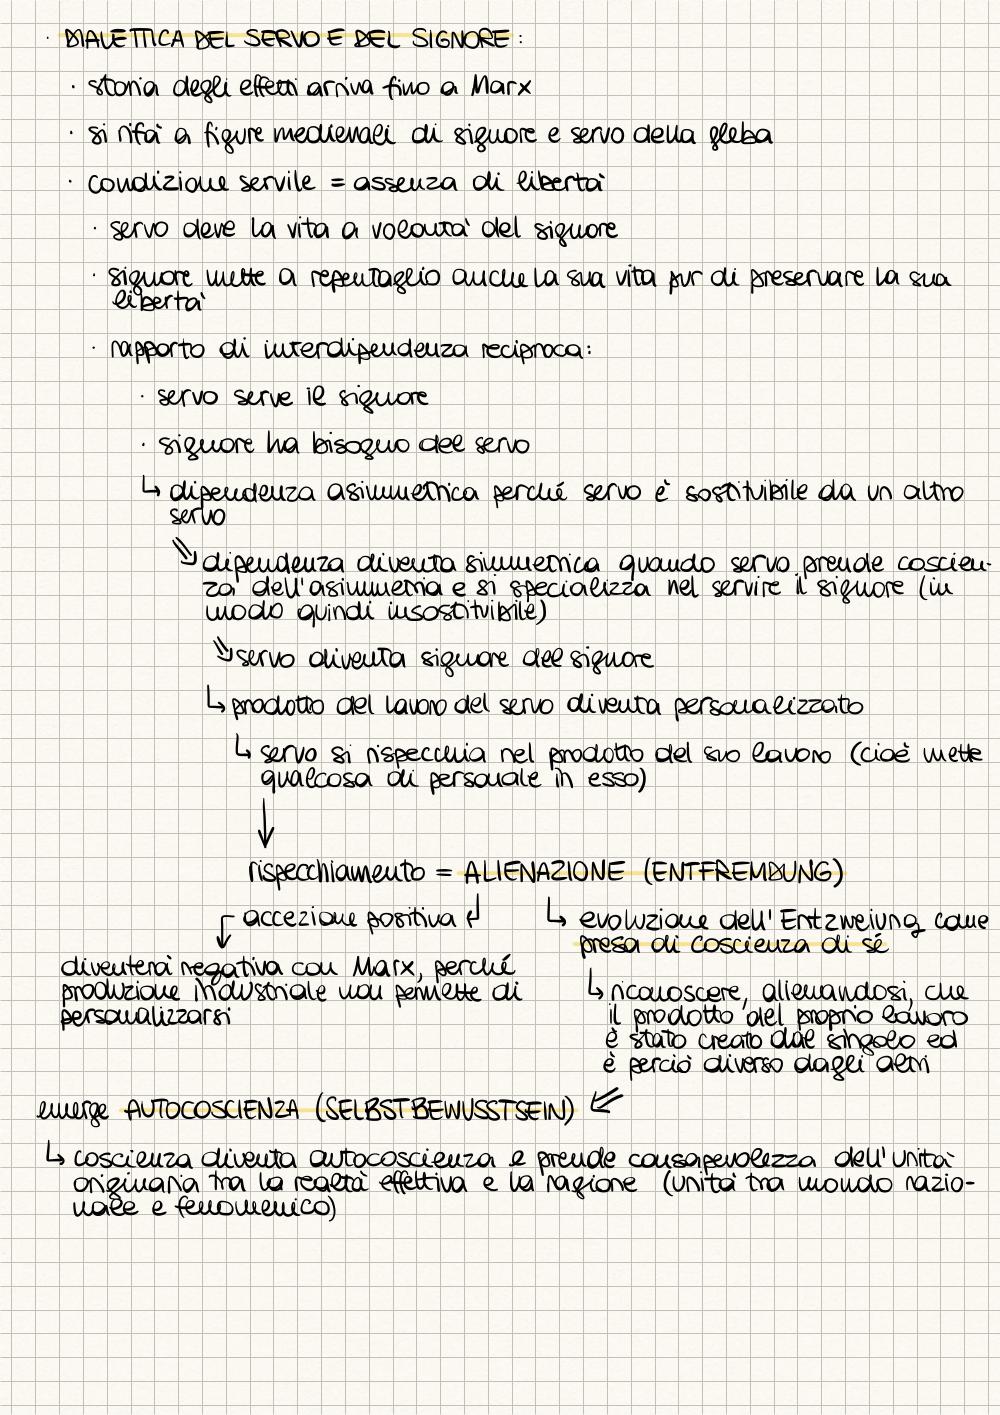 · DIALETTICA DEL SERVO E DEL SIGNORE :
· storia degli effetti arriva fino a Marx
· si rifà a figure medievali di signore e servo della gleba
· condizione servile = assenza di libertà
· servo deve la vita a volontà del signore
· signore mette a repentaglio anche la sua vita pur di preservare la sua
libertà
· rapporto di interdipendenza reciproca:
· servo serve il signore
· signore ha bisogno del servo
↳ dipendenza asimmetrica perché servo è sostituibile da un altro
servo
⇘ dipendenza diventa simmetrica quando servo prende coscien-
za dell'asimmetria e si specializza nel servire il signore (in
modo quindi insostituibile)
⇘ servo diventa signore del signore
↳ prodotto del lavoro del servo diventa personalizzato
↳ servo si rispecchia nel prodotto del suo lavoro (cioè mette
qualcosa di personale in esso)
↓
rispecchiamento = ALIENAZIONE (ENTFREMDUNG)
accezione positiva ↲
diventerà negativa con Marx, perché
produzione industriale non permette di
personalizzarsi
↳ evoluzione dell'Entzweiung come
presa di coscienza di sé
↳ riconoscere, alienandosi, che
il prodotto del proprio lavoro
è stato creato dal singolo ed
è perciò diverso dagli altri
emerge AUTOCOSCIENZA (SELBSTBEWUSSTSEIN) ⇙
↳ coscienza diventa autocoscienza e prende consapevolezza dell'unità
originaria tra la realtà effettiva e la ragione (unità tra mondo razio-
nale e fenomenico)